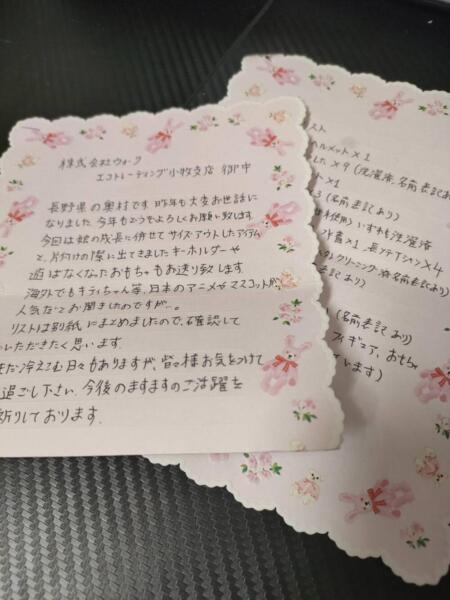 株式会社ウォーク
エコトレーディング小牧支店 御中
長野県の奥村です 昨年も大変お世話に
なりました 今年もどうぞよろしくお願い致します
今回は娘の成長に併せてサイズアウトしたアイテム
と、片付けの際に出てきましたキーホルダーや
遊ばなくなったおもちゃもお送り致します
海外でもキティちゃん等、日本のアニメやマスコットが
人気だとお聞きしたのですが…。
リストは別紙にまとめましたので、確認して
いただきたく思います。
まだ冷えこむ日々もありますが、皆々様お気をつけて
過ごし下さい。今後のますますのご活躍を
祈りしております。
スト
ヘルメット×1
×9 (洗濯済 名前表記あり
ト×1
3 (名前表記あり)
使用) いずれも洗濯済
書×1
×4
クリーニング済 名前表記あり)
(名前表記あり)
フィギュア、おもちゃ
います)